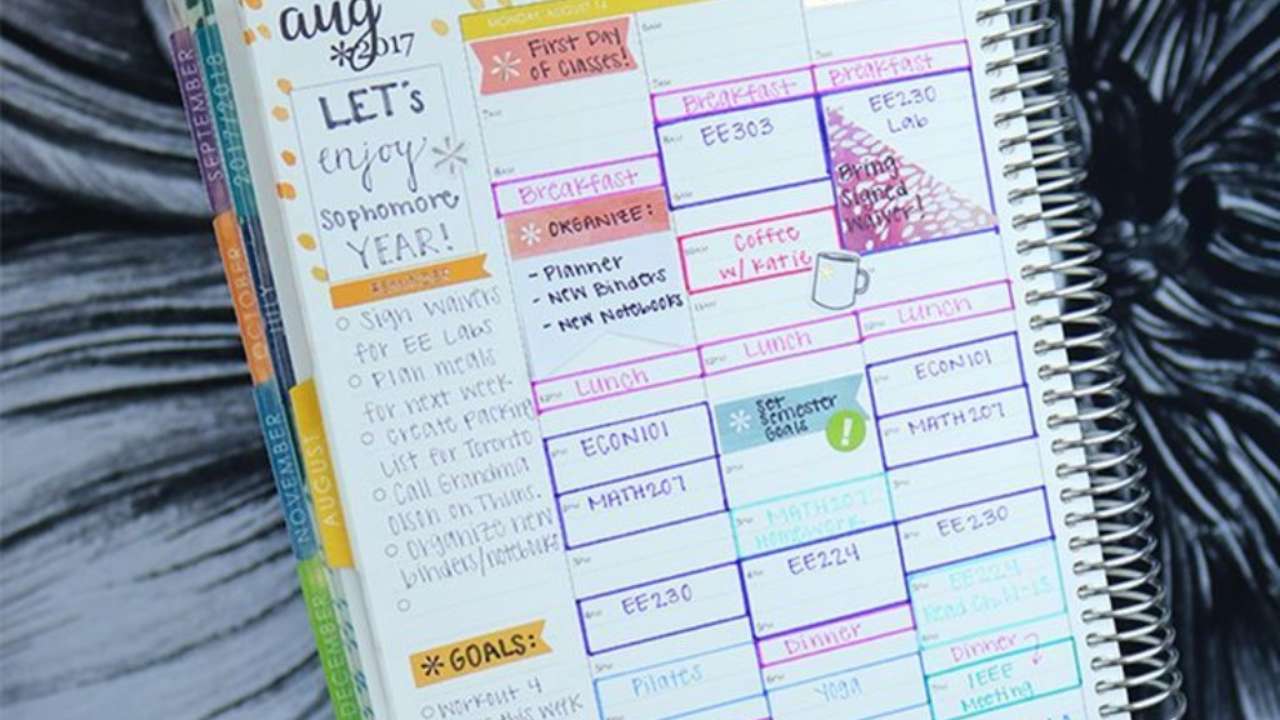 aug
2017
LET's
enjoy
sophomore
YEAR!
Sign Waivers
for EE Labs
Plan meals
for next week
Create Packing
List for Toronto
Call Grandma
Olson on Thurs.
Organize new
binders/notebooks
GOALS:
Workout 4
this week
SEPTEMBER
2017/2018
OCTOBER
NOVEMBER
AUGUST
DECEMBER
MONDAY, AUGUST
First Day
of Classes!
Breakfast
ORGANIZE:
- Planner
- New Binders
- New Notebooks
Lunch
ECON101
MATH207
EE230
Pilates
Breakfast
EE303
Coffee
w/ Katie
Lunch
Set
Semester
Goals
!
MATH207
Homework
EE224
Dinner
Yoga
Breakfast
EE230
Lab
Bring
Signed
Waiver!
Lunch
ECON101
MATH207
EE230
EE224
Read Ch.
Dinner
IEEE
Meeting